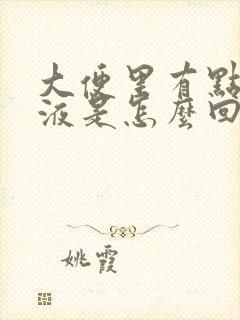 大便里有點
液是怎麼回
姚霞